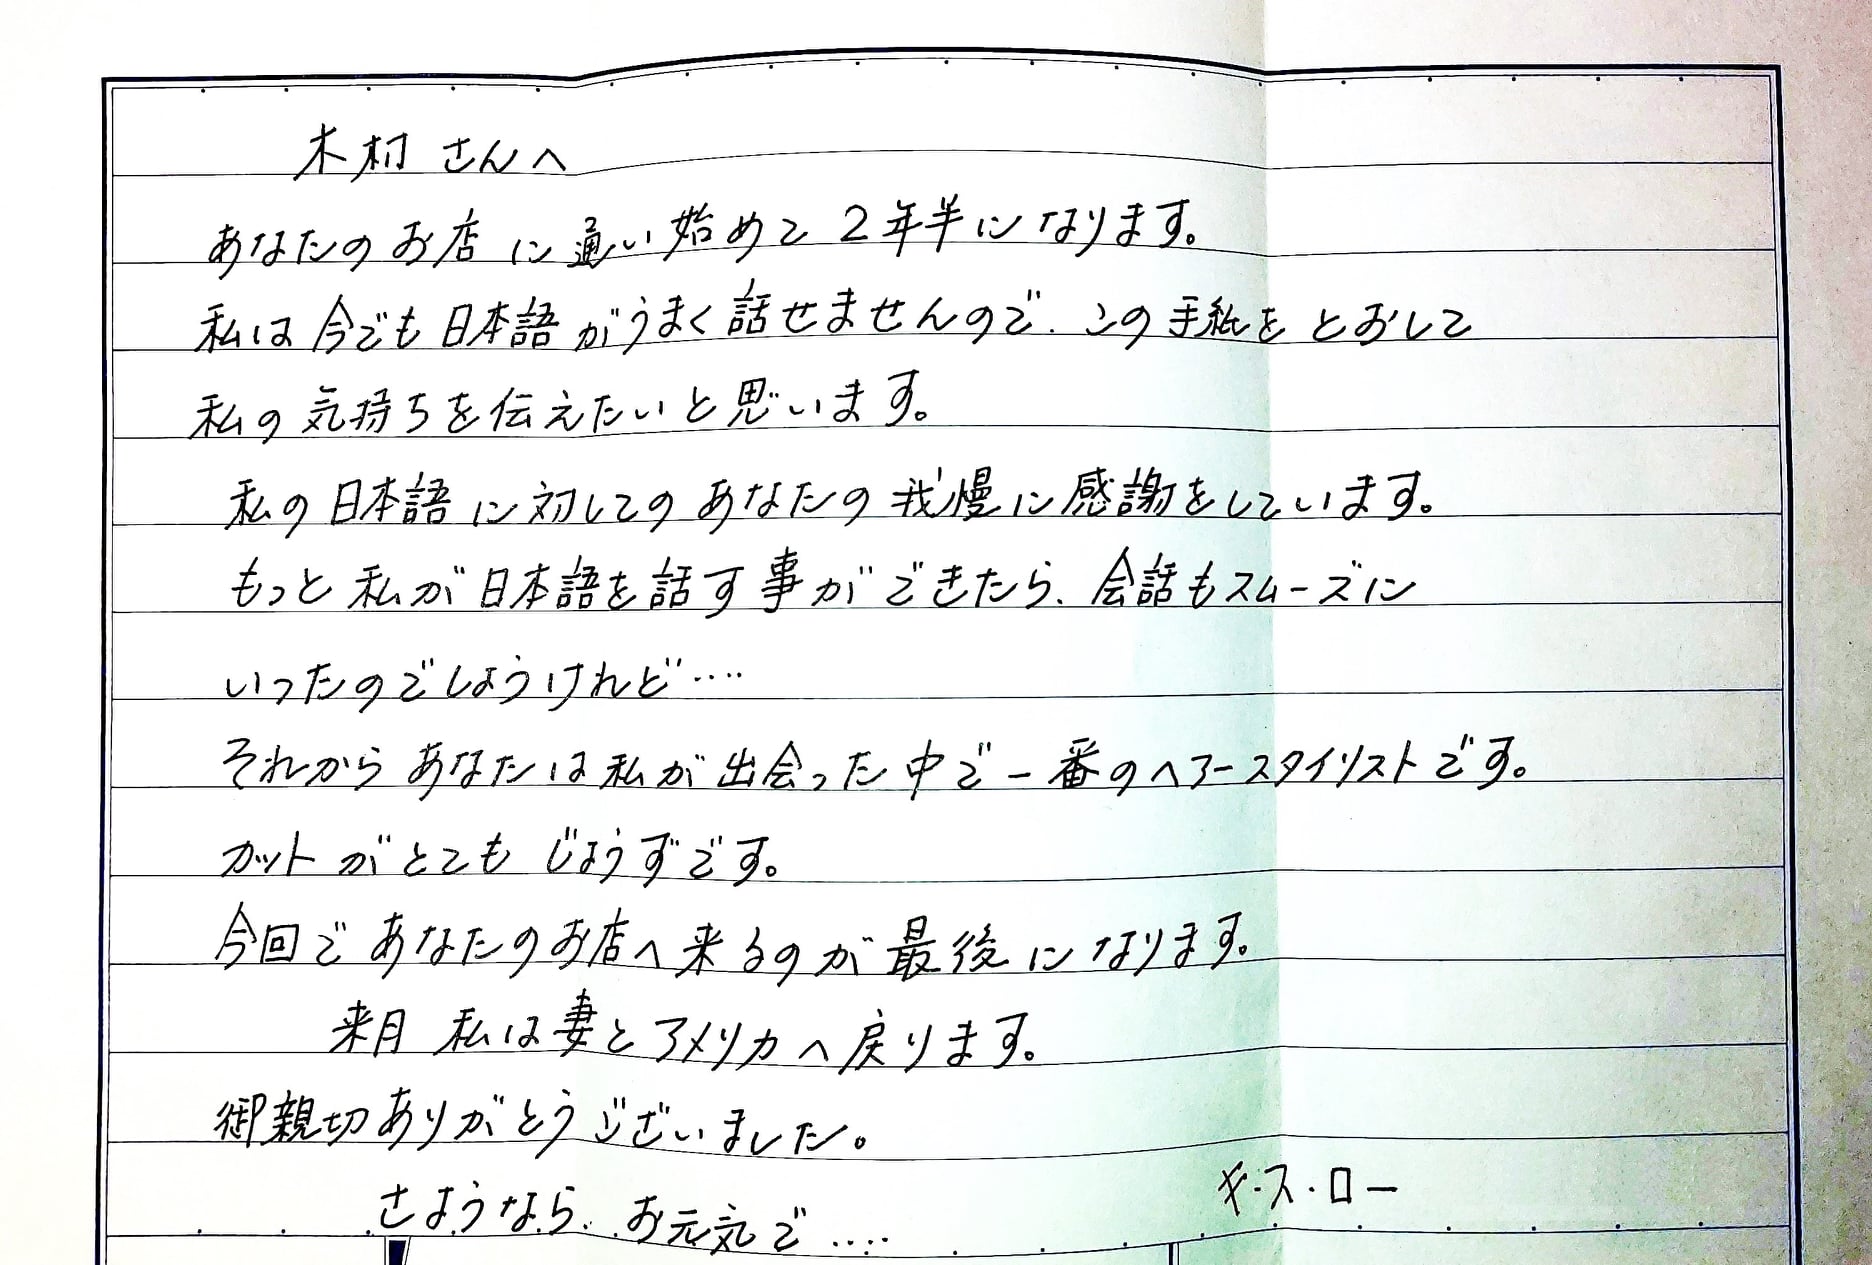 木村さんへ
あなたのお店に通い始めて2年半になります。
私は今でも日本語がうまく話せませんので、この手紙をとおして
私の気持ちを伝えたいと思います。
私の日本語に対してのあなたの我慢に感謝をしています。
もっと私が日本語を話す事ができたら、会話もスムーズに
いったのでしょうけれど‥‥
それからあなたは私が出会った中で一番のヘアースタイリストです。
カットがとてもじょうずです。
今回であなたのお店へ来るのが最後になります。
来月 私は妻とアメリカへ戻ります。
御親切ありがとうございました。
さようなら、お元気で‥‥
キース・ロー